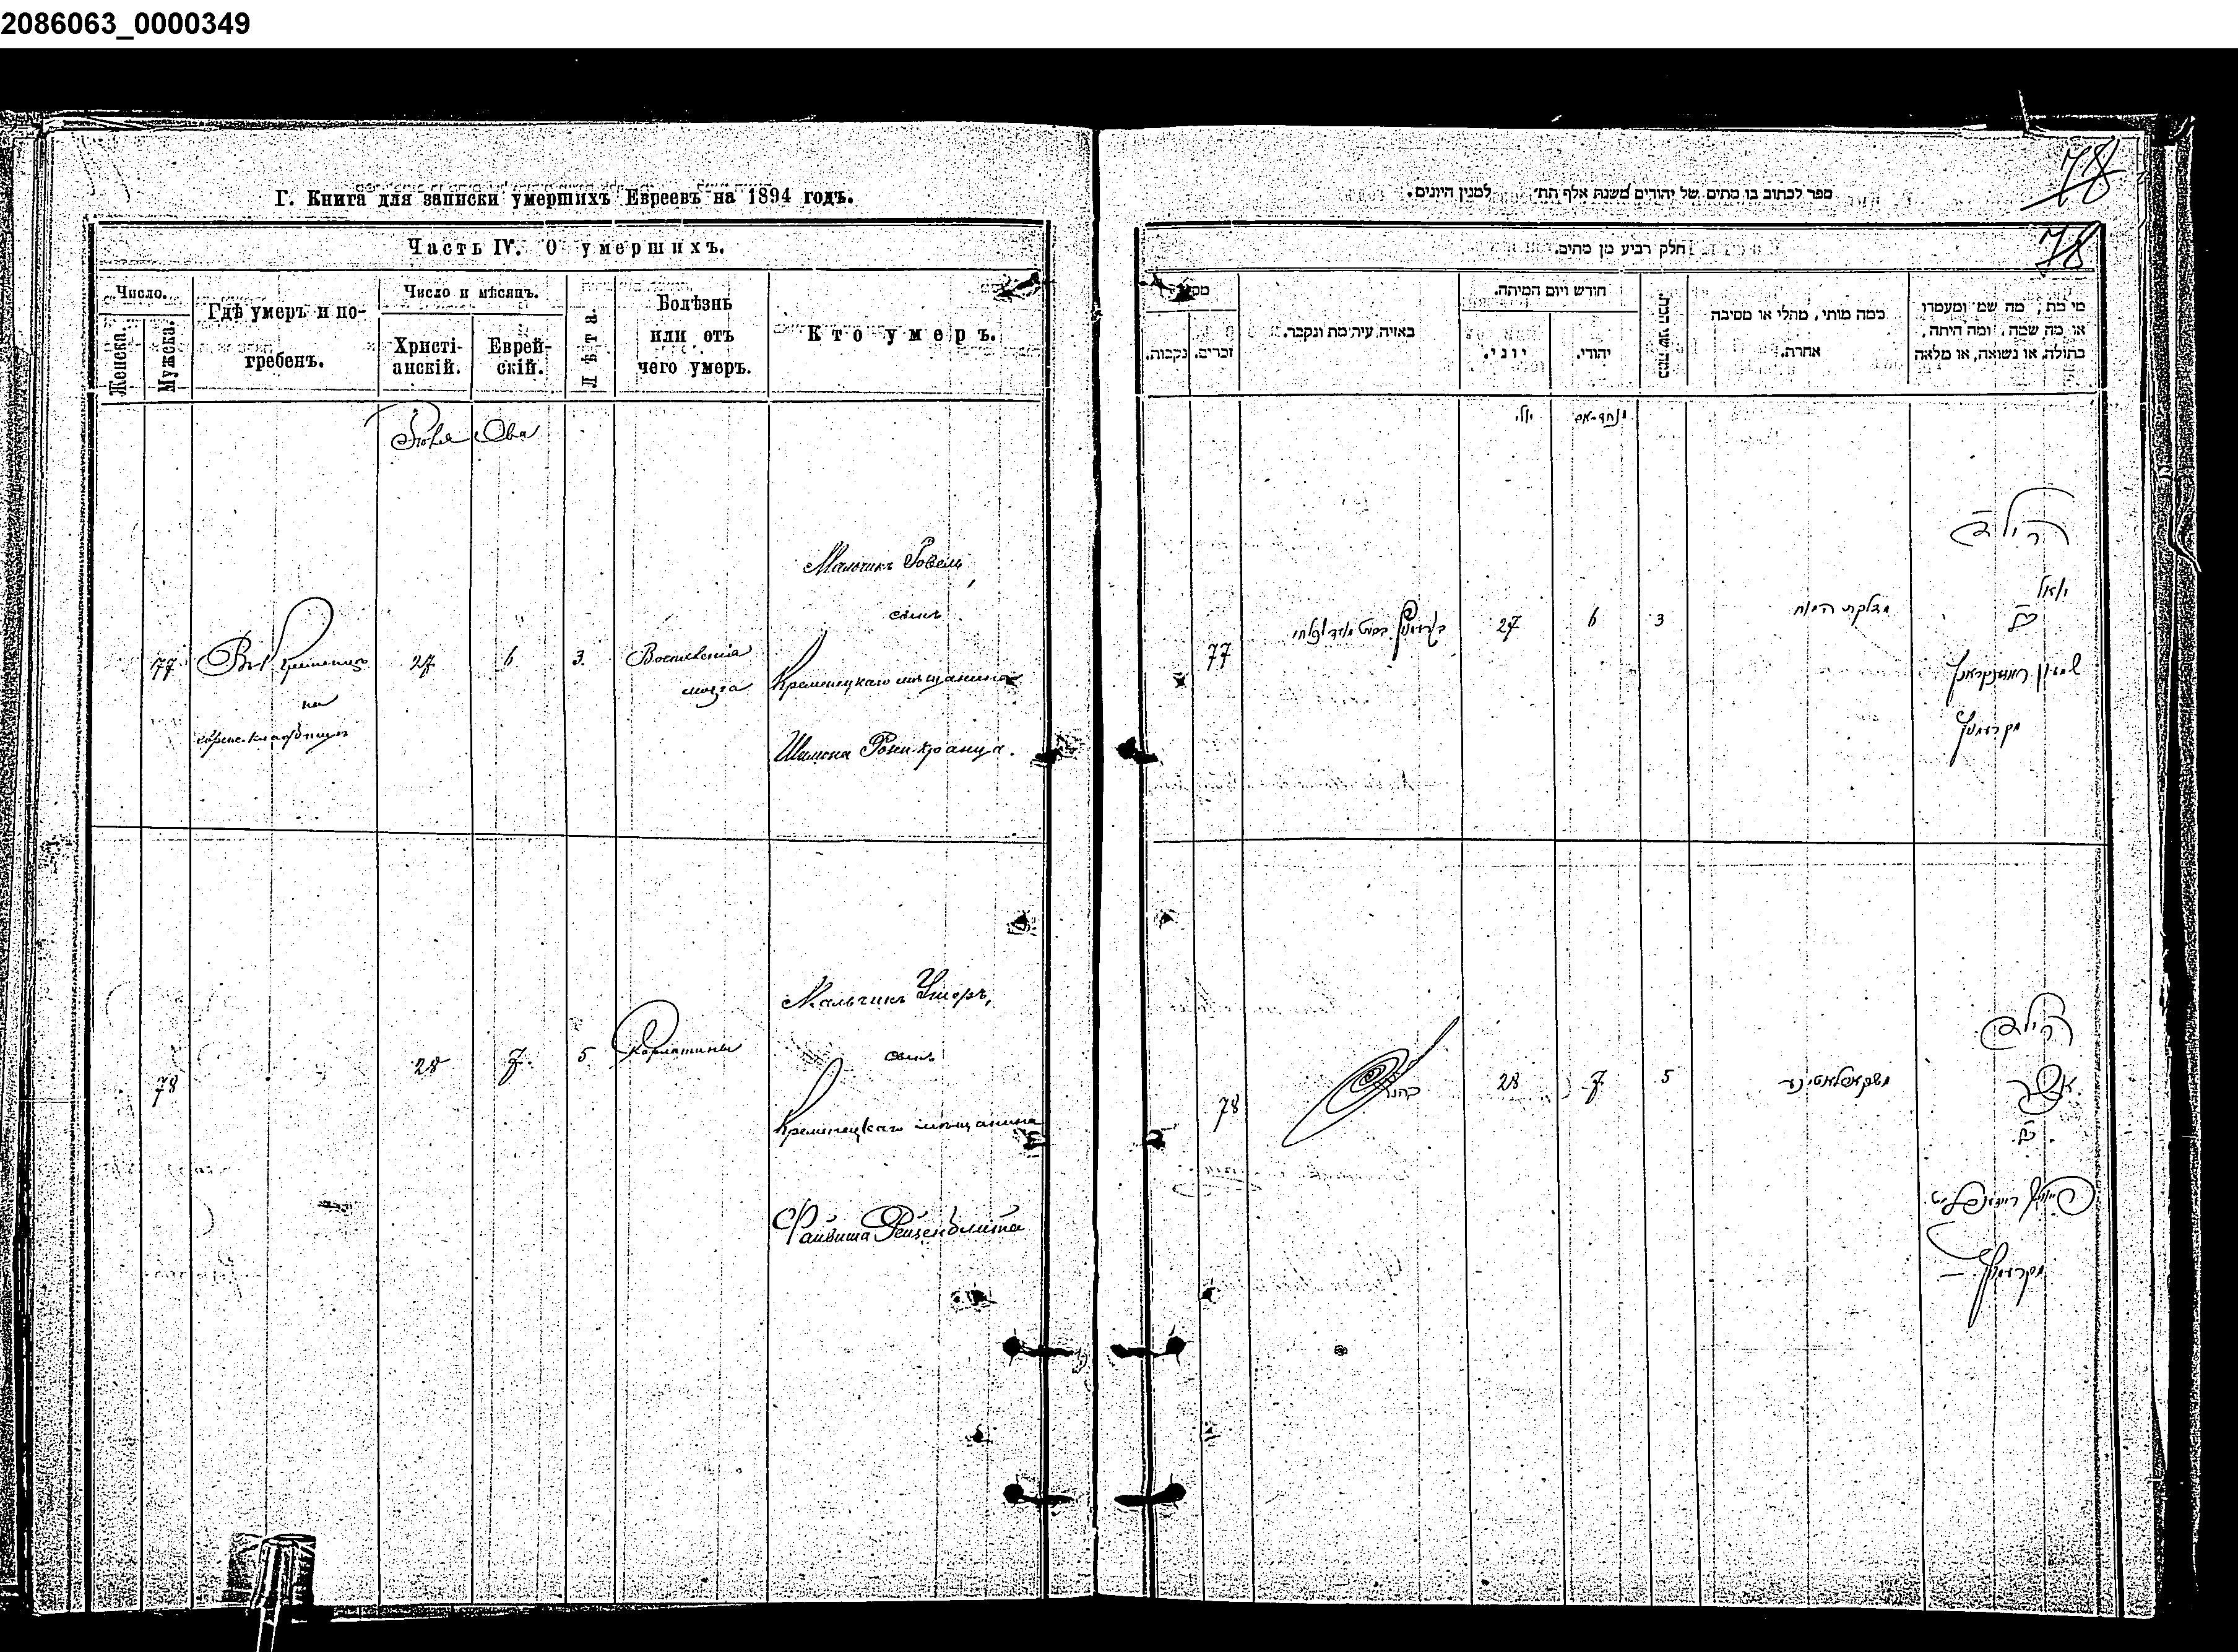 2086063_0000349
Г. Книга для записки умершихъ Евреевъ на 1894 годъ.
Часть IV. О умершихъ.
Число.
Женска.
Мужска.
Гдѣ умеръ и по-
гребенъ.
Число и мѣсяцъ.
Христі-
анскій.
Еврей-
скій.
Лѣта.
Болѣзнь
или отъ
чего умеръ.
Кто умеръ.
Іюля Ова
77
Въ Кременцѣ
на
27
6
3
Воспаленія
мозга
Мальчикъ Іовель
сынъ
Кременецкаго мѣщанина
Шимона Розикранца.
78
28
7
5
Скарлатины
Мальчикъ Ушеръ,
сынъ
Кременецкаго мѣщанина
Файвиша Рейзенблита
78
78
ספר לכתוב בו מתים של יהודים משנת אלף תת״ למנין היונים.
חלק רביע מן מתים.
נקבות.
זכרים.
באיזה עיר מת ונקבר.
חודש ויום המיתה.
יוני.
יהודי.
כמה מותי, מחלי או מסיבה
אחרת.
מי מת, מה שם ומעמדו
או מה שמה, ומה היתה,
בתולה, או נשואה, או מלאה
יולי
77
27
6
3
מדלקת המוח
הילד
יואל
בן
שמעון ראזענקראנץ
מקרעמניץ
78
28
7
5
משקארלאטינע
הילד
אשר
בן
מקרעמניץ